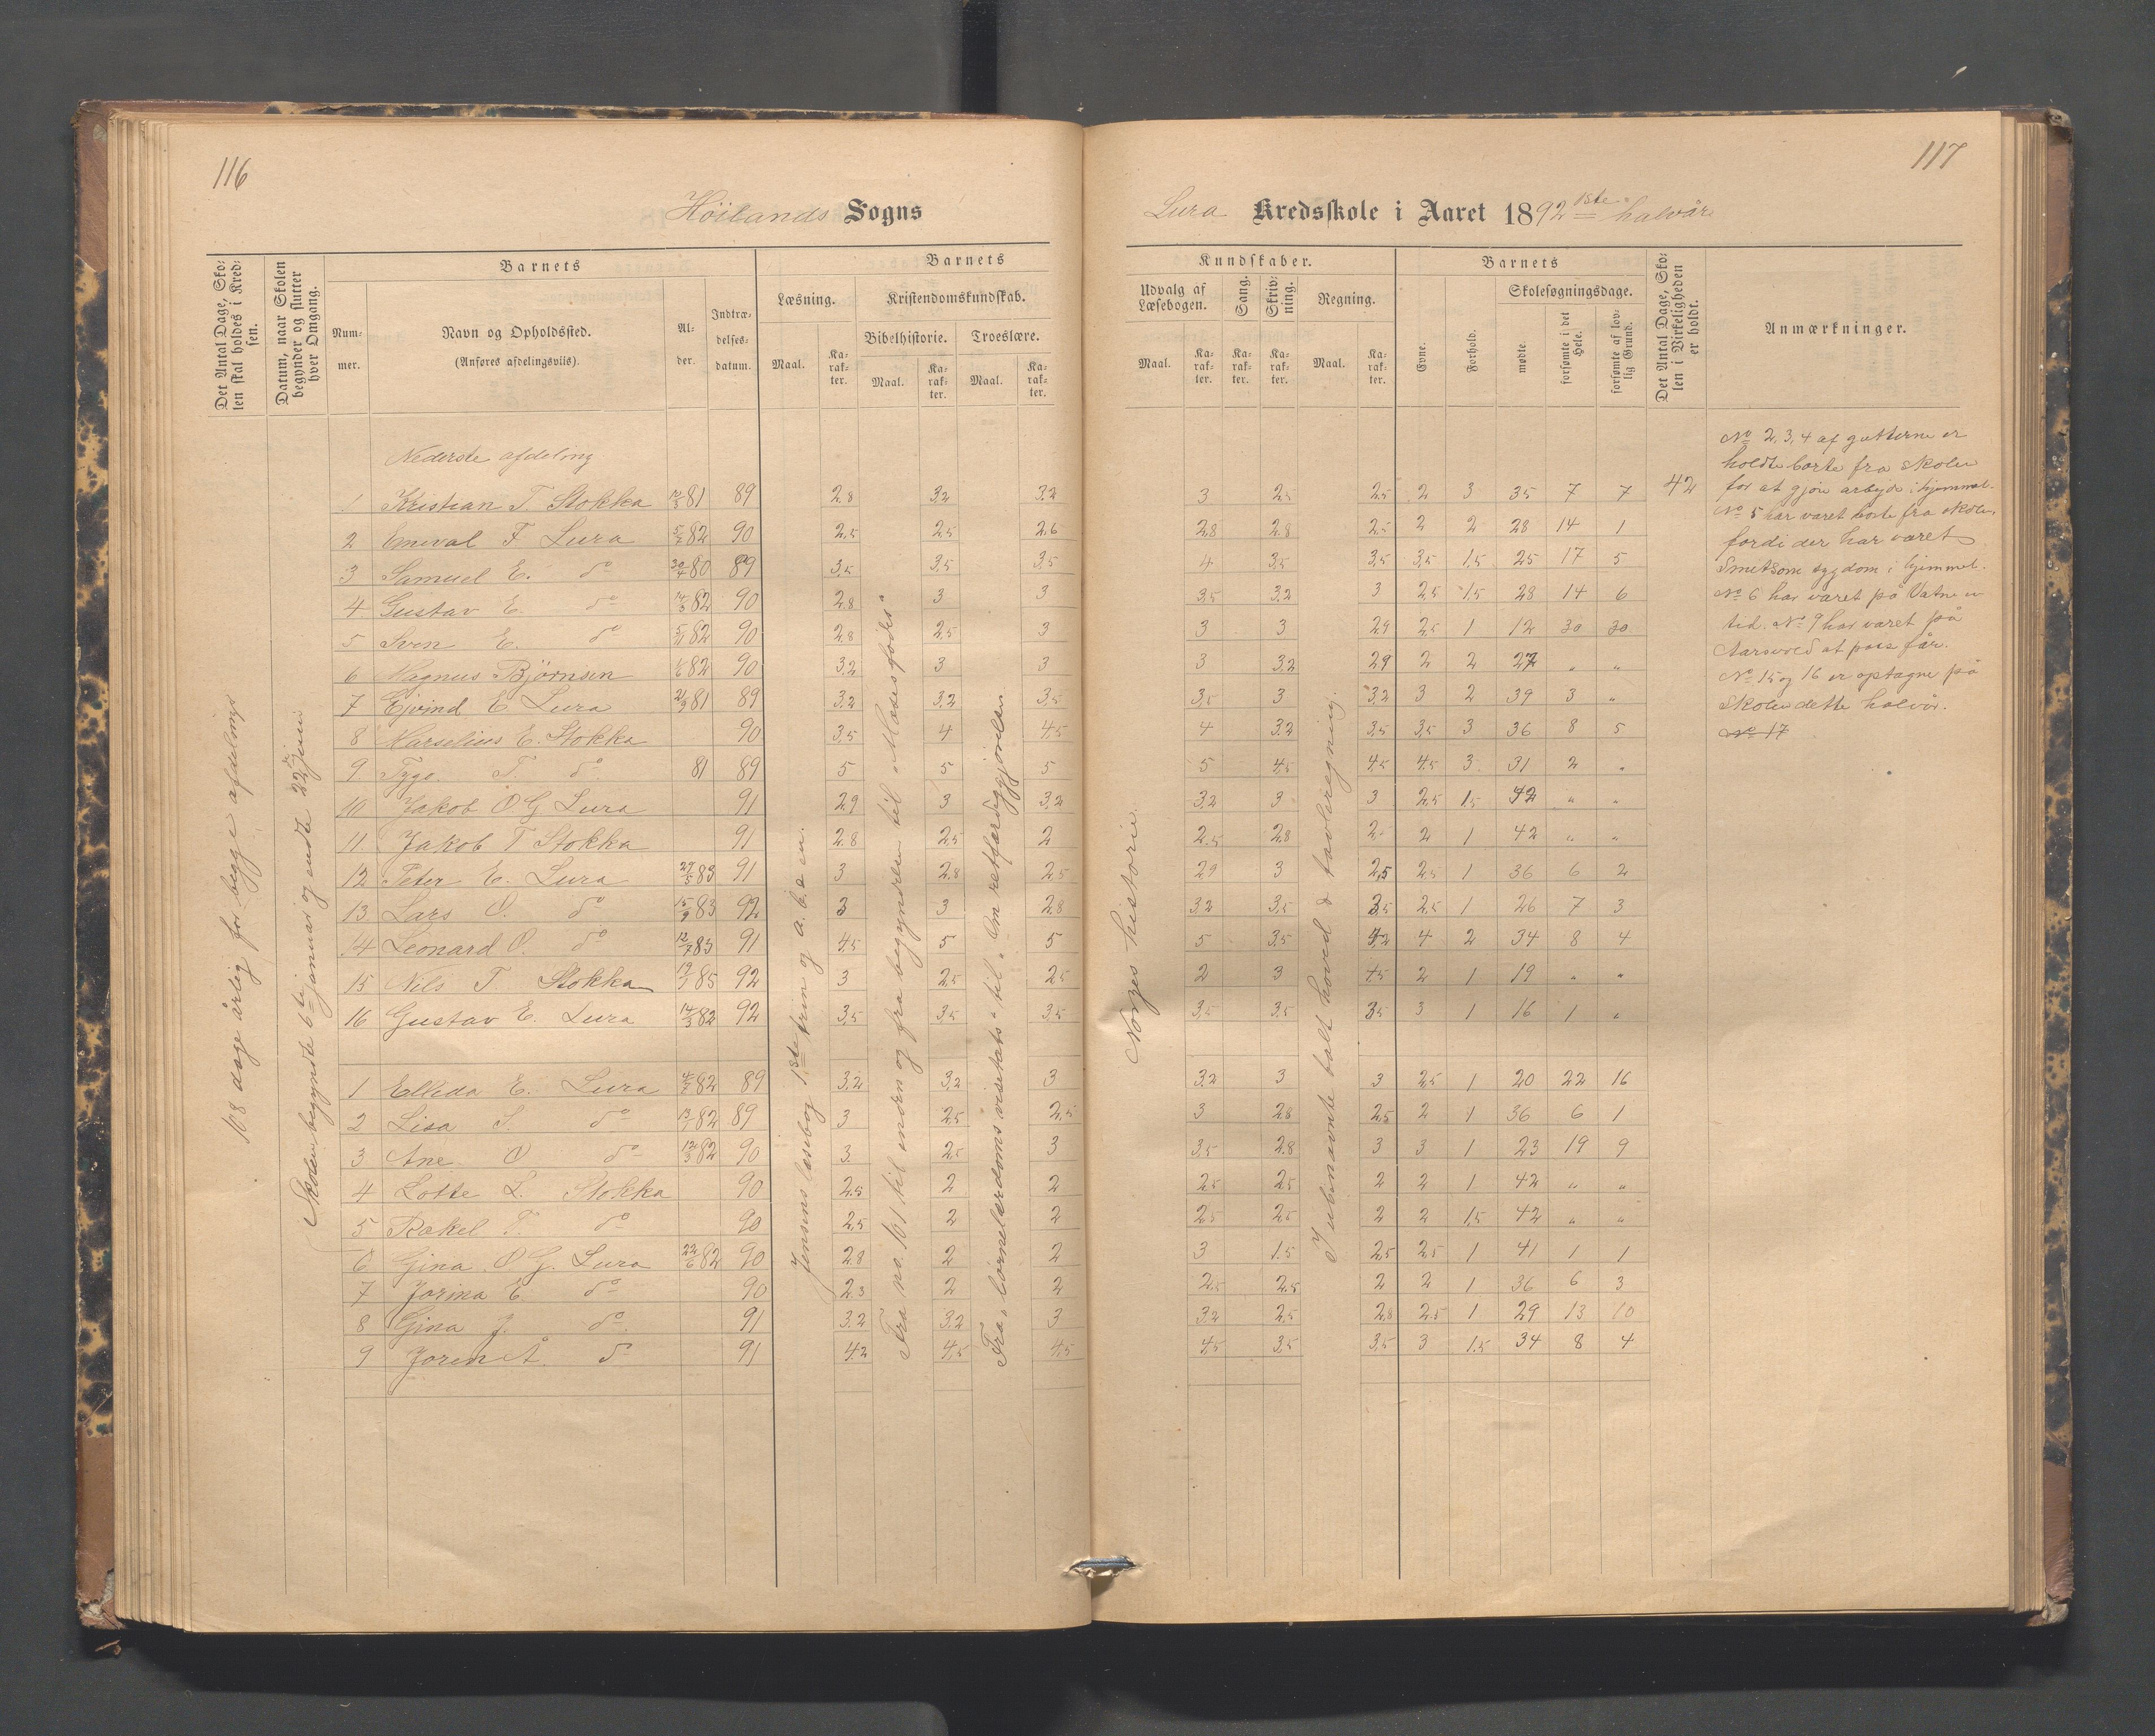 116
Höilands Sogns
Det Antal Dage, Skolen skal holdes i Kredsen.
Datum, naar Skolen begynder og slutter hver Omgang.
Barnets
Nummer.
Navn og Opholdssted.
(Anføres afdelingsvis).
Alder.
Indtrædelsesdatum.
Barnets
Læsning.
Kristendomskundskab.
Bibelhistorie.
Troeslære.
Maal.
Karakter.
Maal.
Karakter.
Maal.
Karakter.
108 dage årlig for begge afdelinger
Skolen begyndte 6te januar og endte 22de juni
Nederste afdeling
1 Kristian T. Stokka 81 89 2.8 3.2 3.2
2 Eneval F Lura 82 90 2,5 2,5 2,6
3 Samuel E. do 30/4 80 89 3,5 3,5 3,5
4 Gustav E. do 14/3 82 90 2.8 3 3
5 Sven E. do 82 90 2,8 2,5 3
6 Magnus Björnsen 82 90 3.2 3 3
7 Ejvind E Lura 81 89 3,2 3,2 3,5
8 Marselius E. Stokka 90 3,5 4 4,5
9 Tygo. T. do 81 89 5 5 5
10 Jakob O G Lura 91 2,9 3 3,2
11 Jakob T Stokka 91 2.8 2,5 2
12 Peter E. Lura 83 91 3 2.8 2,5
13 Lars O. do 15/9 83 92 3 3 2.8
14 Leonard O. do 12/7 83 91 4,5 5 5
15 Nils T Stokka 85 92 3 2,5 2,5
16 Gustav E. Lura 14/3 82 92 3,5 3,5 3,5
1 Ellida E. Lura 82 89 3,2 3,2 3
2 Lisa S. do 82 89 3 2,5 2,5
3 Ane O do 12/3 82 90 3 2,5 3
4 Lotte L. Stokka 90 2,5 2 2
5 Rakel T. do 90 2,5 2 2
6 Gina O G. Lura 22/6 82 90 2.8 2 2
7 Jorina E do 90 2,3 2 2
8 Gina J. do 91 3.2 3.2 3
9 Joren A. d 91 4.2 4,5 4,5
Jensens læsebog 1ste trin og a. b. c en.
Fra no. 161 til enden og fra begyndelsen til "Moses fødes"
Fra "börnelærdoms visehats" til "Om retfærdiggjörelsen
117
Lura Kredsskole i Aaret 1892 1ste halvår
Kundskaber.
Udvalg af Læsebogen.
Sang.
Skrivning.
Regning.
Maal.
Karakter.
Karakter.
Karakter.
Maal.
Karakter.
Barnets
Evne.
Forhold.
Skolesøgningsdage.
mødte
forsømte i det Hele.
forsømte af lovlig Grund.
Det Antal Dage, Skolen i Virkeligheden er holdt.
Anmærkninger.
Norges historie.
I ubenævnte talt hoved & tavleregning.
3 2,5 2,5 2 3 35 7 7 42
2,8 2.8 2,5 2 2 28 14 1
4 3,5 3,5 3,5 1.5 25 17 5
3,5 3,2 3 2,5 1.5 28 14 6
3 3 2,9 2,5 1 12 30 30
3 3.2 2,9 2 2 27 " "
3,5 3 3,2 3 2 39 3 "
4 3,2 3,5 3,5 3 36 8 5
5 4,5 4,5 4,5 3 31 2 "
3,2 3 3 2,5 1,5 42 " "
2,5 2,8 2 1 42 " "
2,9 3 2,5 2,5 1 36 6 2
3,2 3,5 3,5 2,5 1 26 7 3
5 3,5 4,2 4 2 34 8 4
2 3 4,5 2 1 19 " "
3,5 3,5 3,5 3 1 16 1 "
3,2 3 3 2,5 1 20 22 16
3 2.8 2,5 2 1 36 6 1
3,5 2.8 3 3 1 23 19 9
2,5 2,5 2 2 1 42 " "
2,5 2,5 2 2 1,5 42 " "
3 1.5 2,5 2,5 1 41 1 1
2,5 2,5 2 2 1 36 6 3
3,2 2,5 2,8 2,5 1 29 13 10
4,5 3,5 3,5 3 1.5 34 8 4
No 2, 3, 4 af gutterne er
holdte borte fra skolen
for at gjöre arbejde i hjemmet.
No 5 har været borte fra skolen,
fordi der har været
smetsom sygdom i hjemmet.
No 6 har været på Vatne
tid. No 9 har været på
Aarsvold at pass får.
No 15 og 16 er optagne på
skolen dette halvår.
No 17